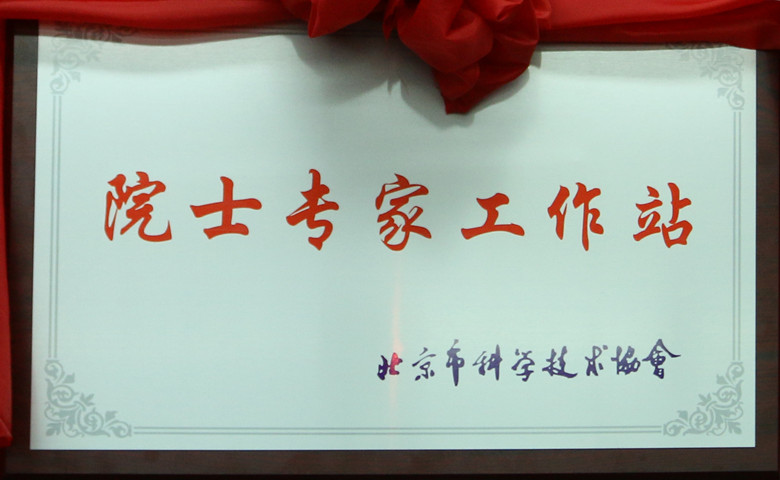 院士专家工作站
北京市科学技术协會